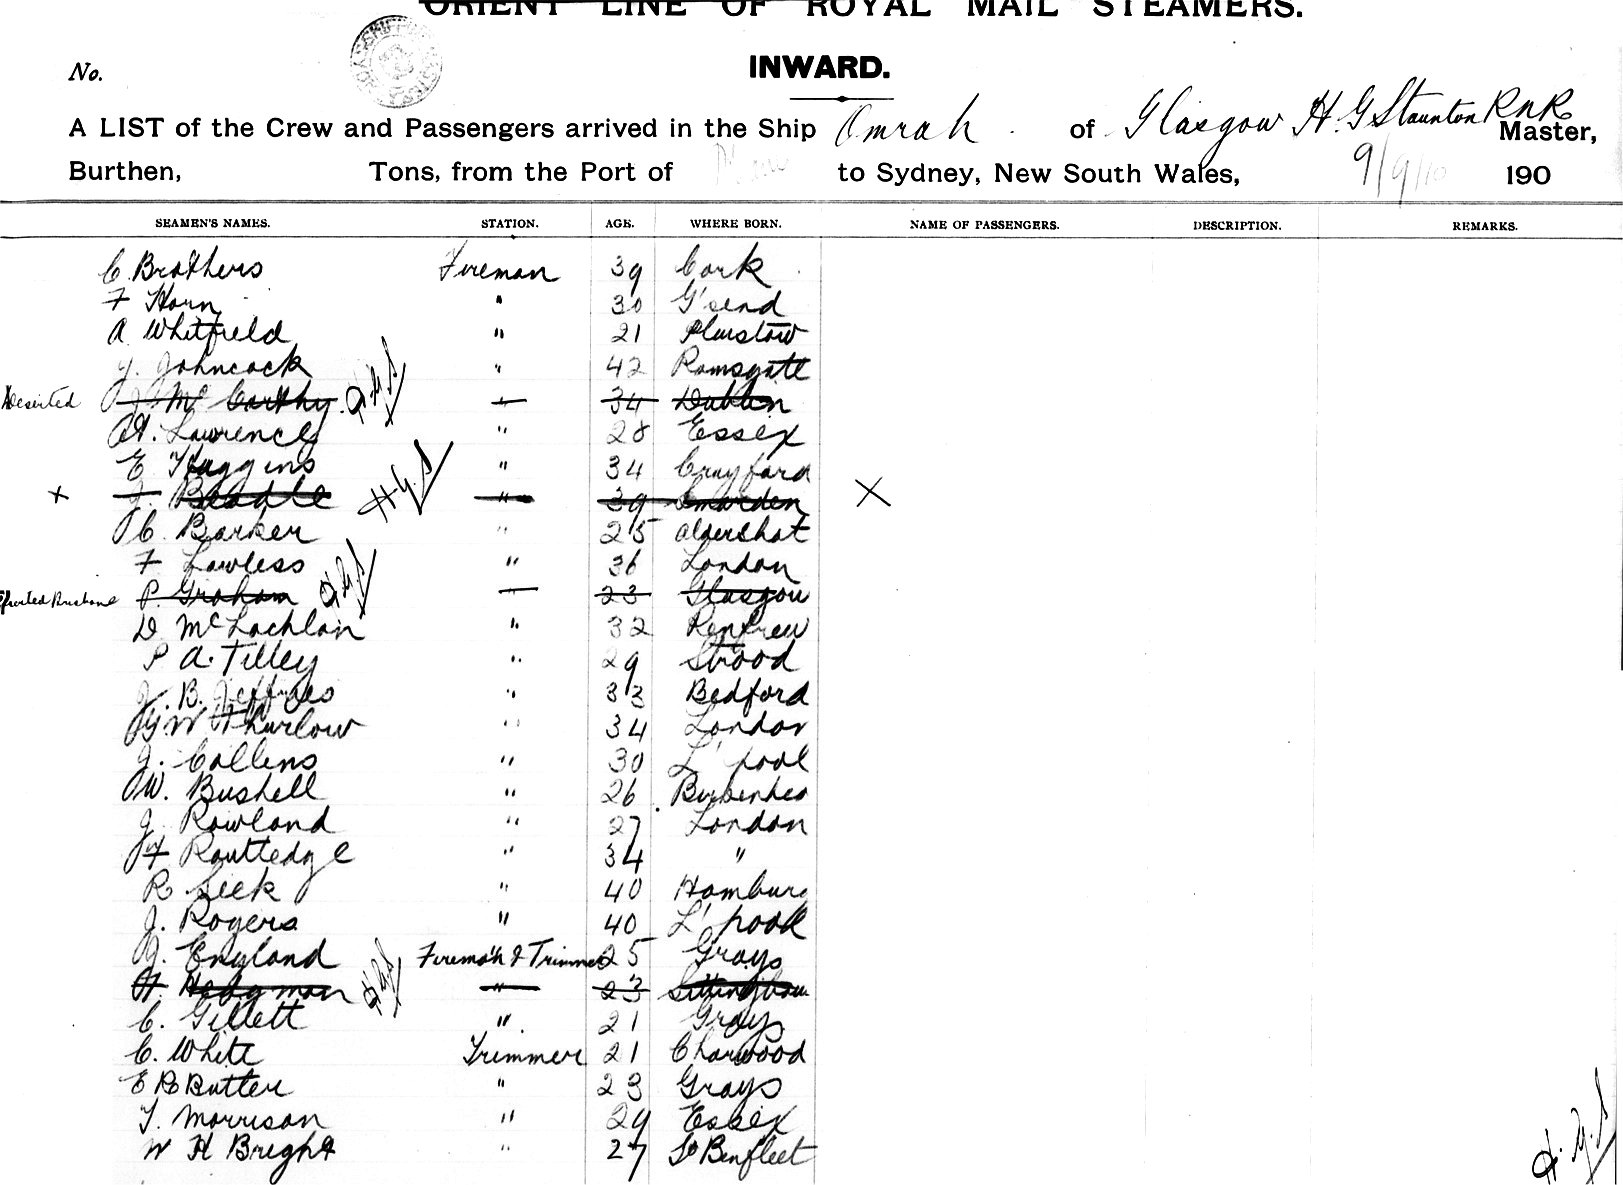 ORIENT LINE OF ROYAL MAIL STEAMERS.
INWARD.
No.
A LIST of the Crew and Passengers arrived in the Ship Omrah of Glasgow H. G Staunton RNR Master,
Burthen, Tons, from the Port of to Sydney, New South Wales, 9/9/10 190
SEAMEN'S NAMES. STATION. AGE. WHERE BORN. NAME OF PASSENGERS. DESCRIPTION. REMARKS.
C. Brothers Fireman 39 Cork
F Horn " 30 G'send
A Whitfield " 21 Plaistow
Y. Johncock " 42 Ramsgate
Deserted J Mc Carthy. H.G.S " 34 Dublin
A. Lawrence " 28 Essex
E Huggins " 34 Crayford
x J. Beadle H.G.S " 39 Smarden X
C. Barker " 25 Aldershot
F Lawless " 36 London
P. Graham H.G.S " 23 Glasgow
D McLachlan " 32 Renfrew
P A. Tilley " 29 Strood
J. B. Jeffries " 33 Bedford
G W Thurlow " 34 London
J. Collens " 30 L'pool
W. Bushell " 26 Birkenhea
J. Rowland " 27 London
F Routledge " 34 "
R. Leek " 40 Hamburg
J. Rogers " 40 L'pool
J. England Fireman & Trimmer 25 Grays
H. Hedgman H.G.S " 23 Sittingbou
C. Gillett " 21 Grays
C. White Trimmer 21 Charwood
E R Butter " 23 Grays
T. Morrison " 29 Essex
W H Bright " 27 So Benfleet
H.G.S